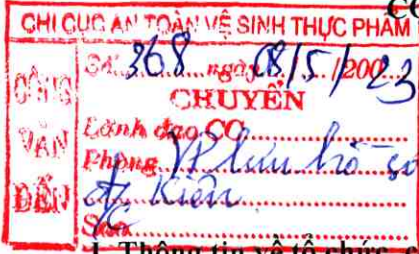 CHI CỤC AN TOÀN VỆ SINH THỰC PHẨM
CÔNG VĂN ĐẾN
Số 368 ngày 08/5/2023
CHUYỂN
Lãnh đạo CC
Phòng VP lưu hồ sơ
A. Kiên
Sao
I. Thông tin về tổ chức, c